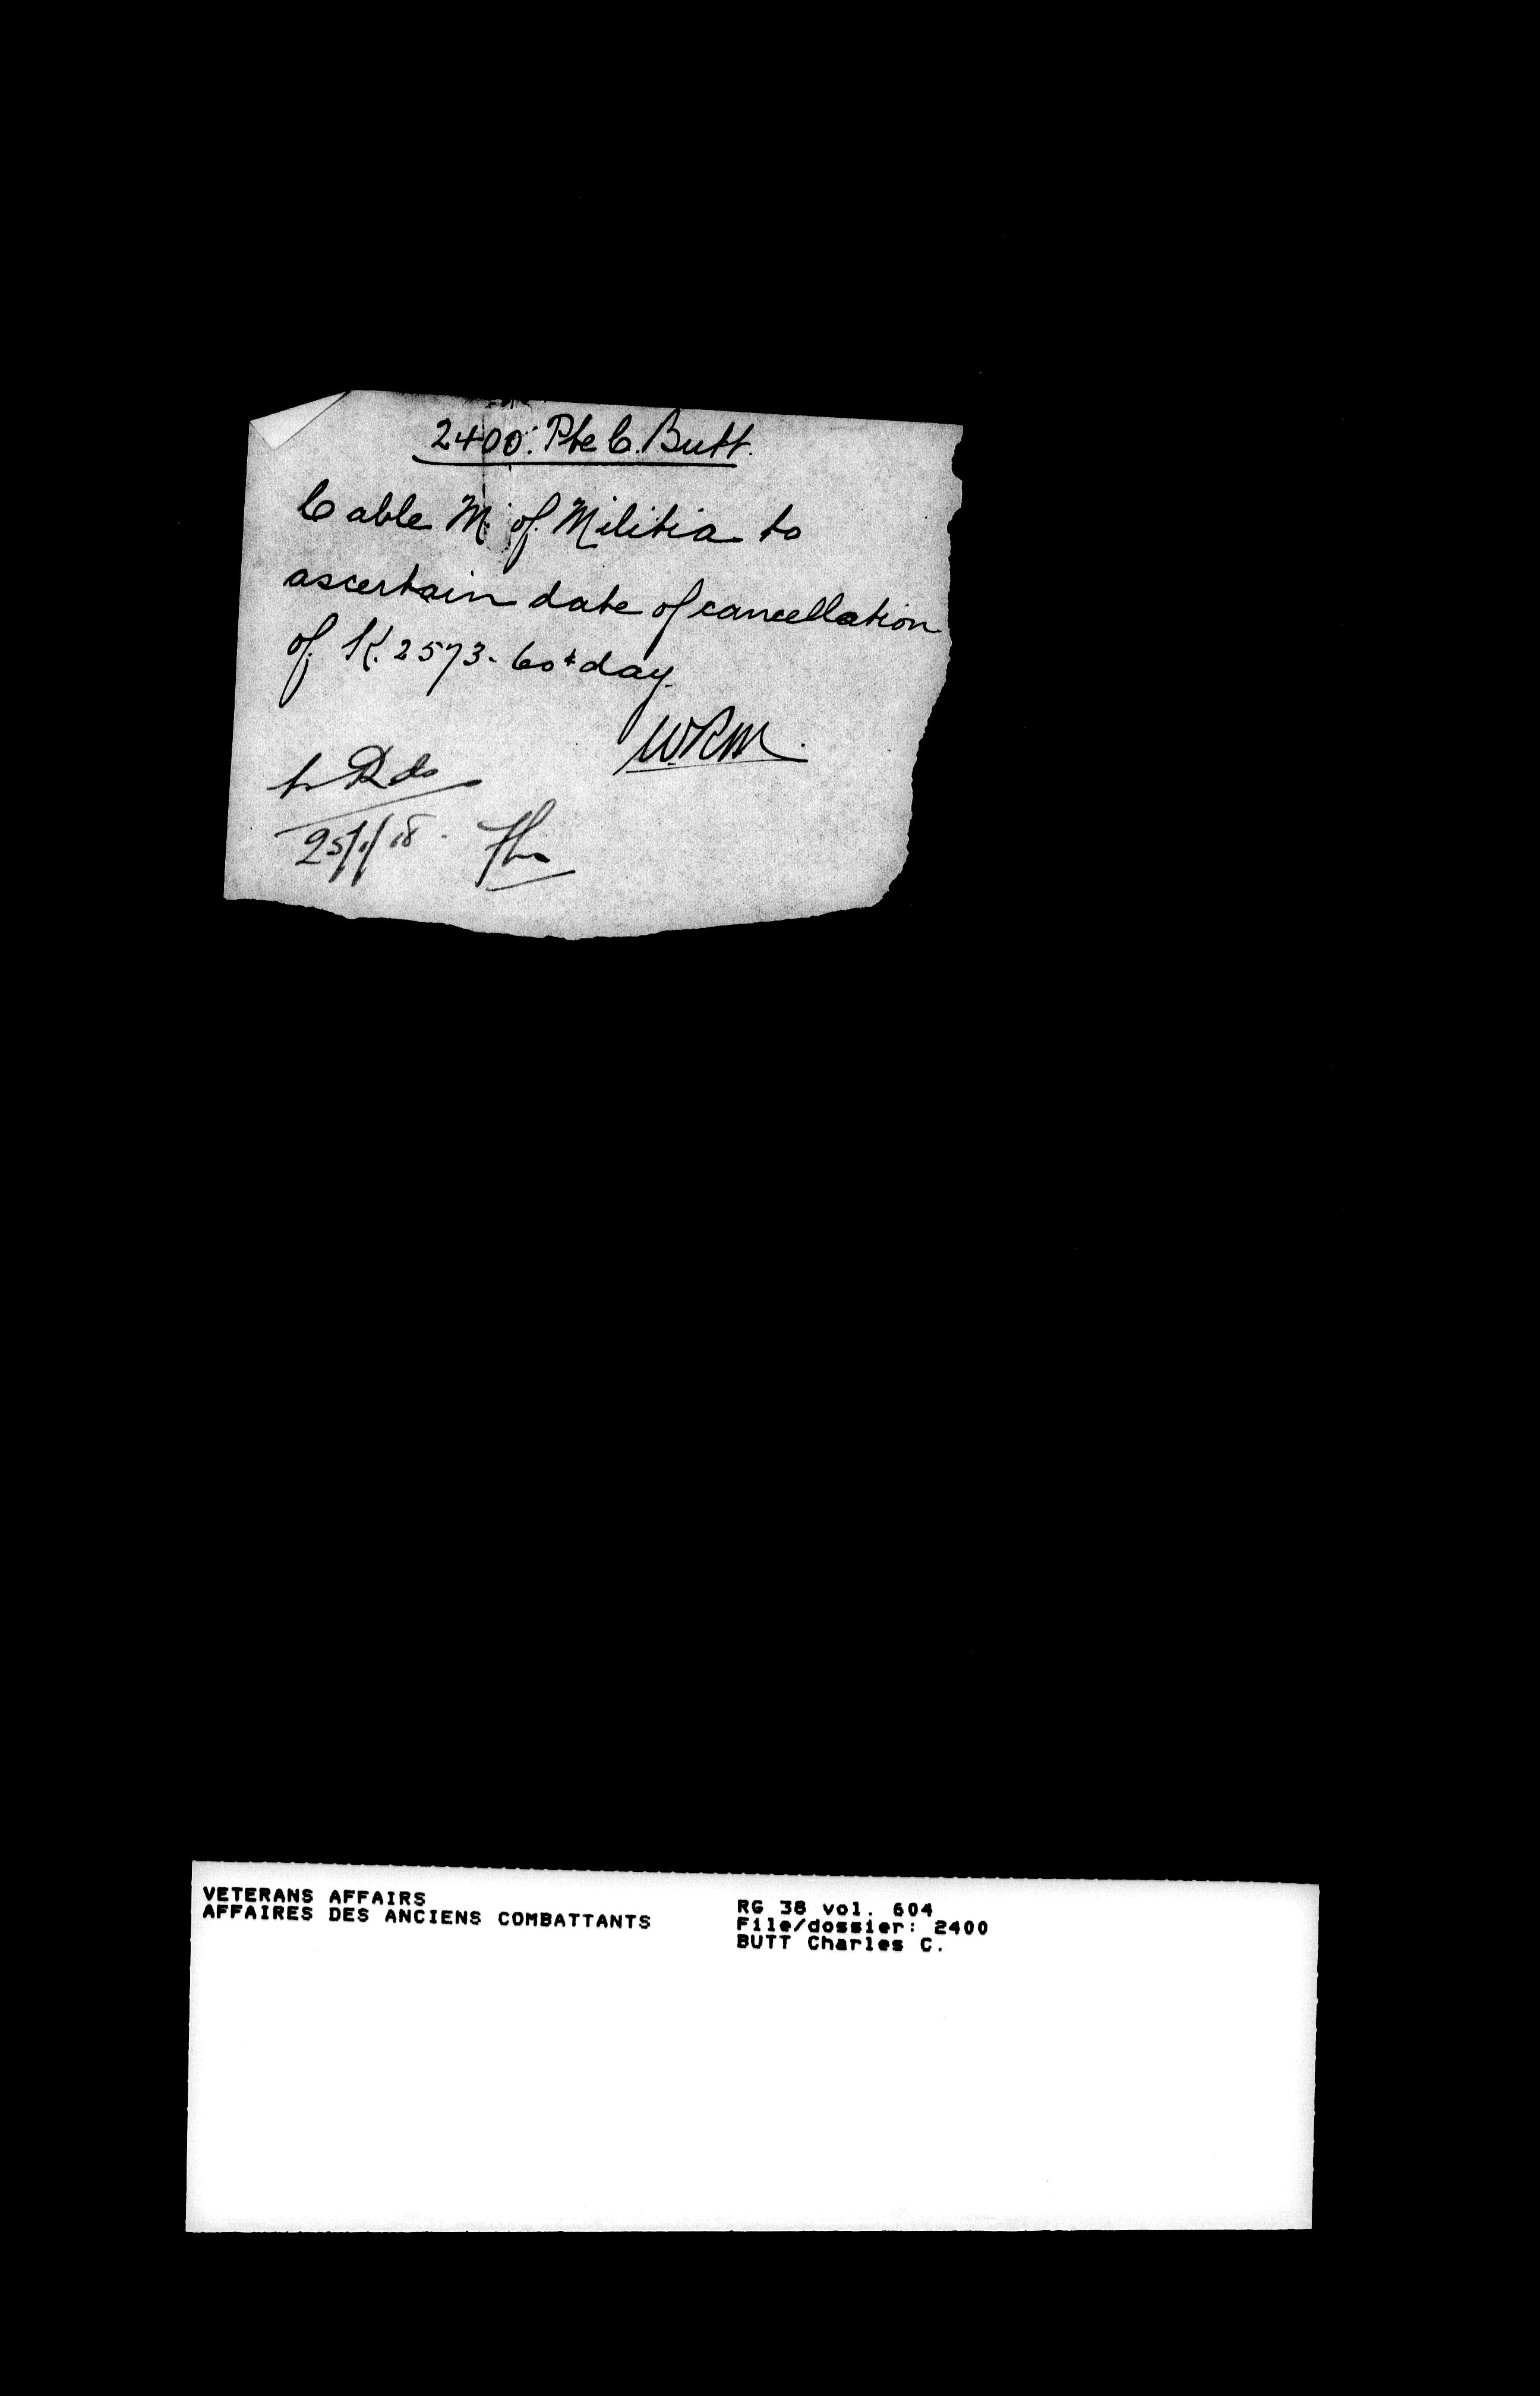 2400. Pte C. Butt.
Cable M. of Militia to
ascertain date of cancellation
of K. 2573. 60¢ day.
WRM.
25/1/18.
VETERANS AFFAIRS
AFFAIRES DES ANCIENS COMBATTANTS
RG 38 vol. 604
File/dossier: 2400
BUTT Charles C.